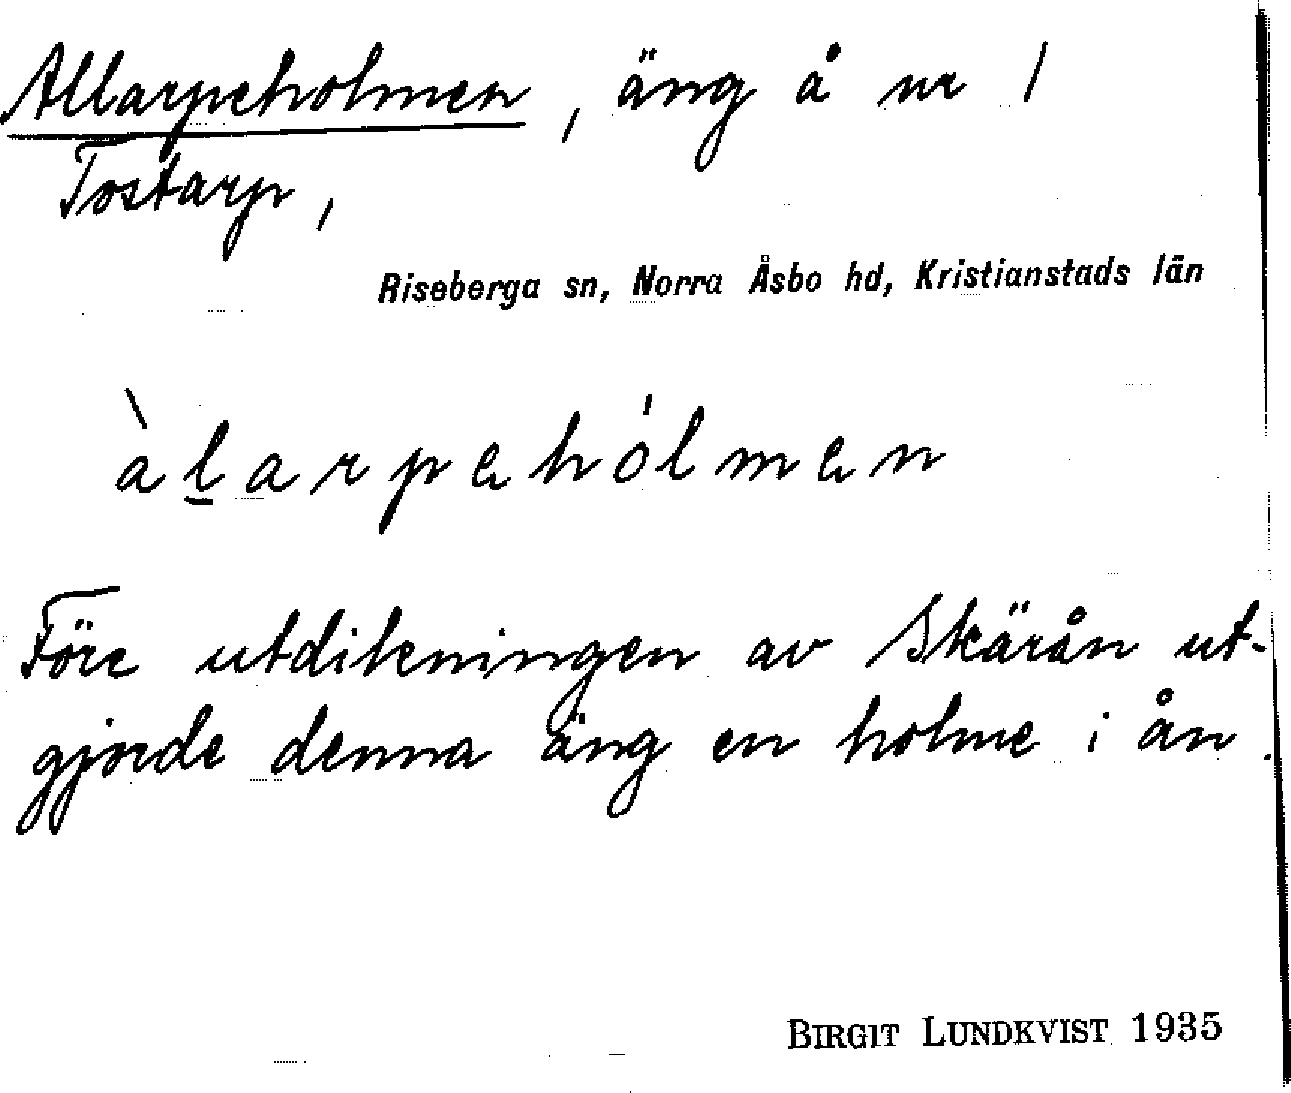 Allarpeholmen, äng å nr 1
Tostarp,
Riseberga sn, Norra Åsbo hd, Kristianstads län
àḻarpəhólmən
Före utdikeningen av Skärån ut-
gjorde denna äng en holme i ån.
BIRGIT LUNDKVIST 1935